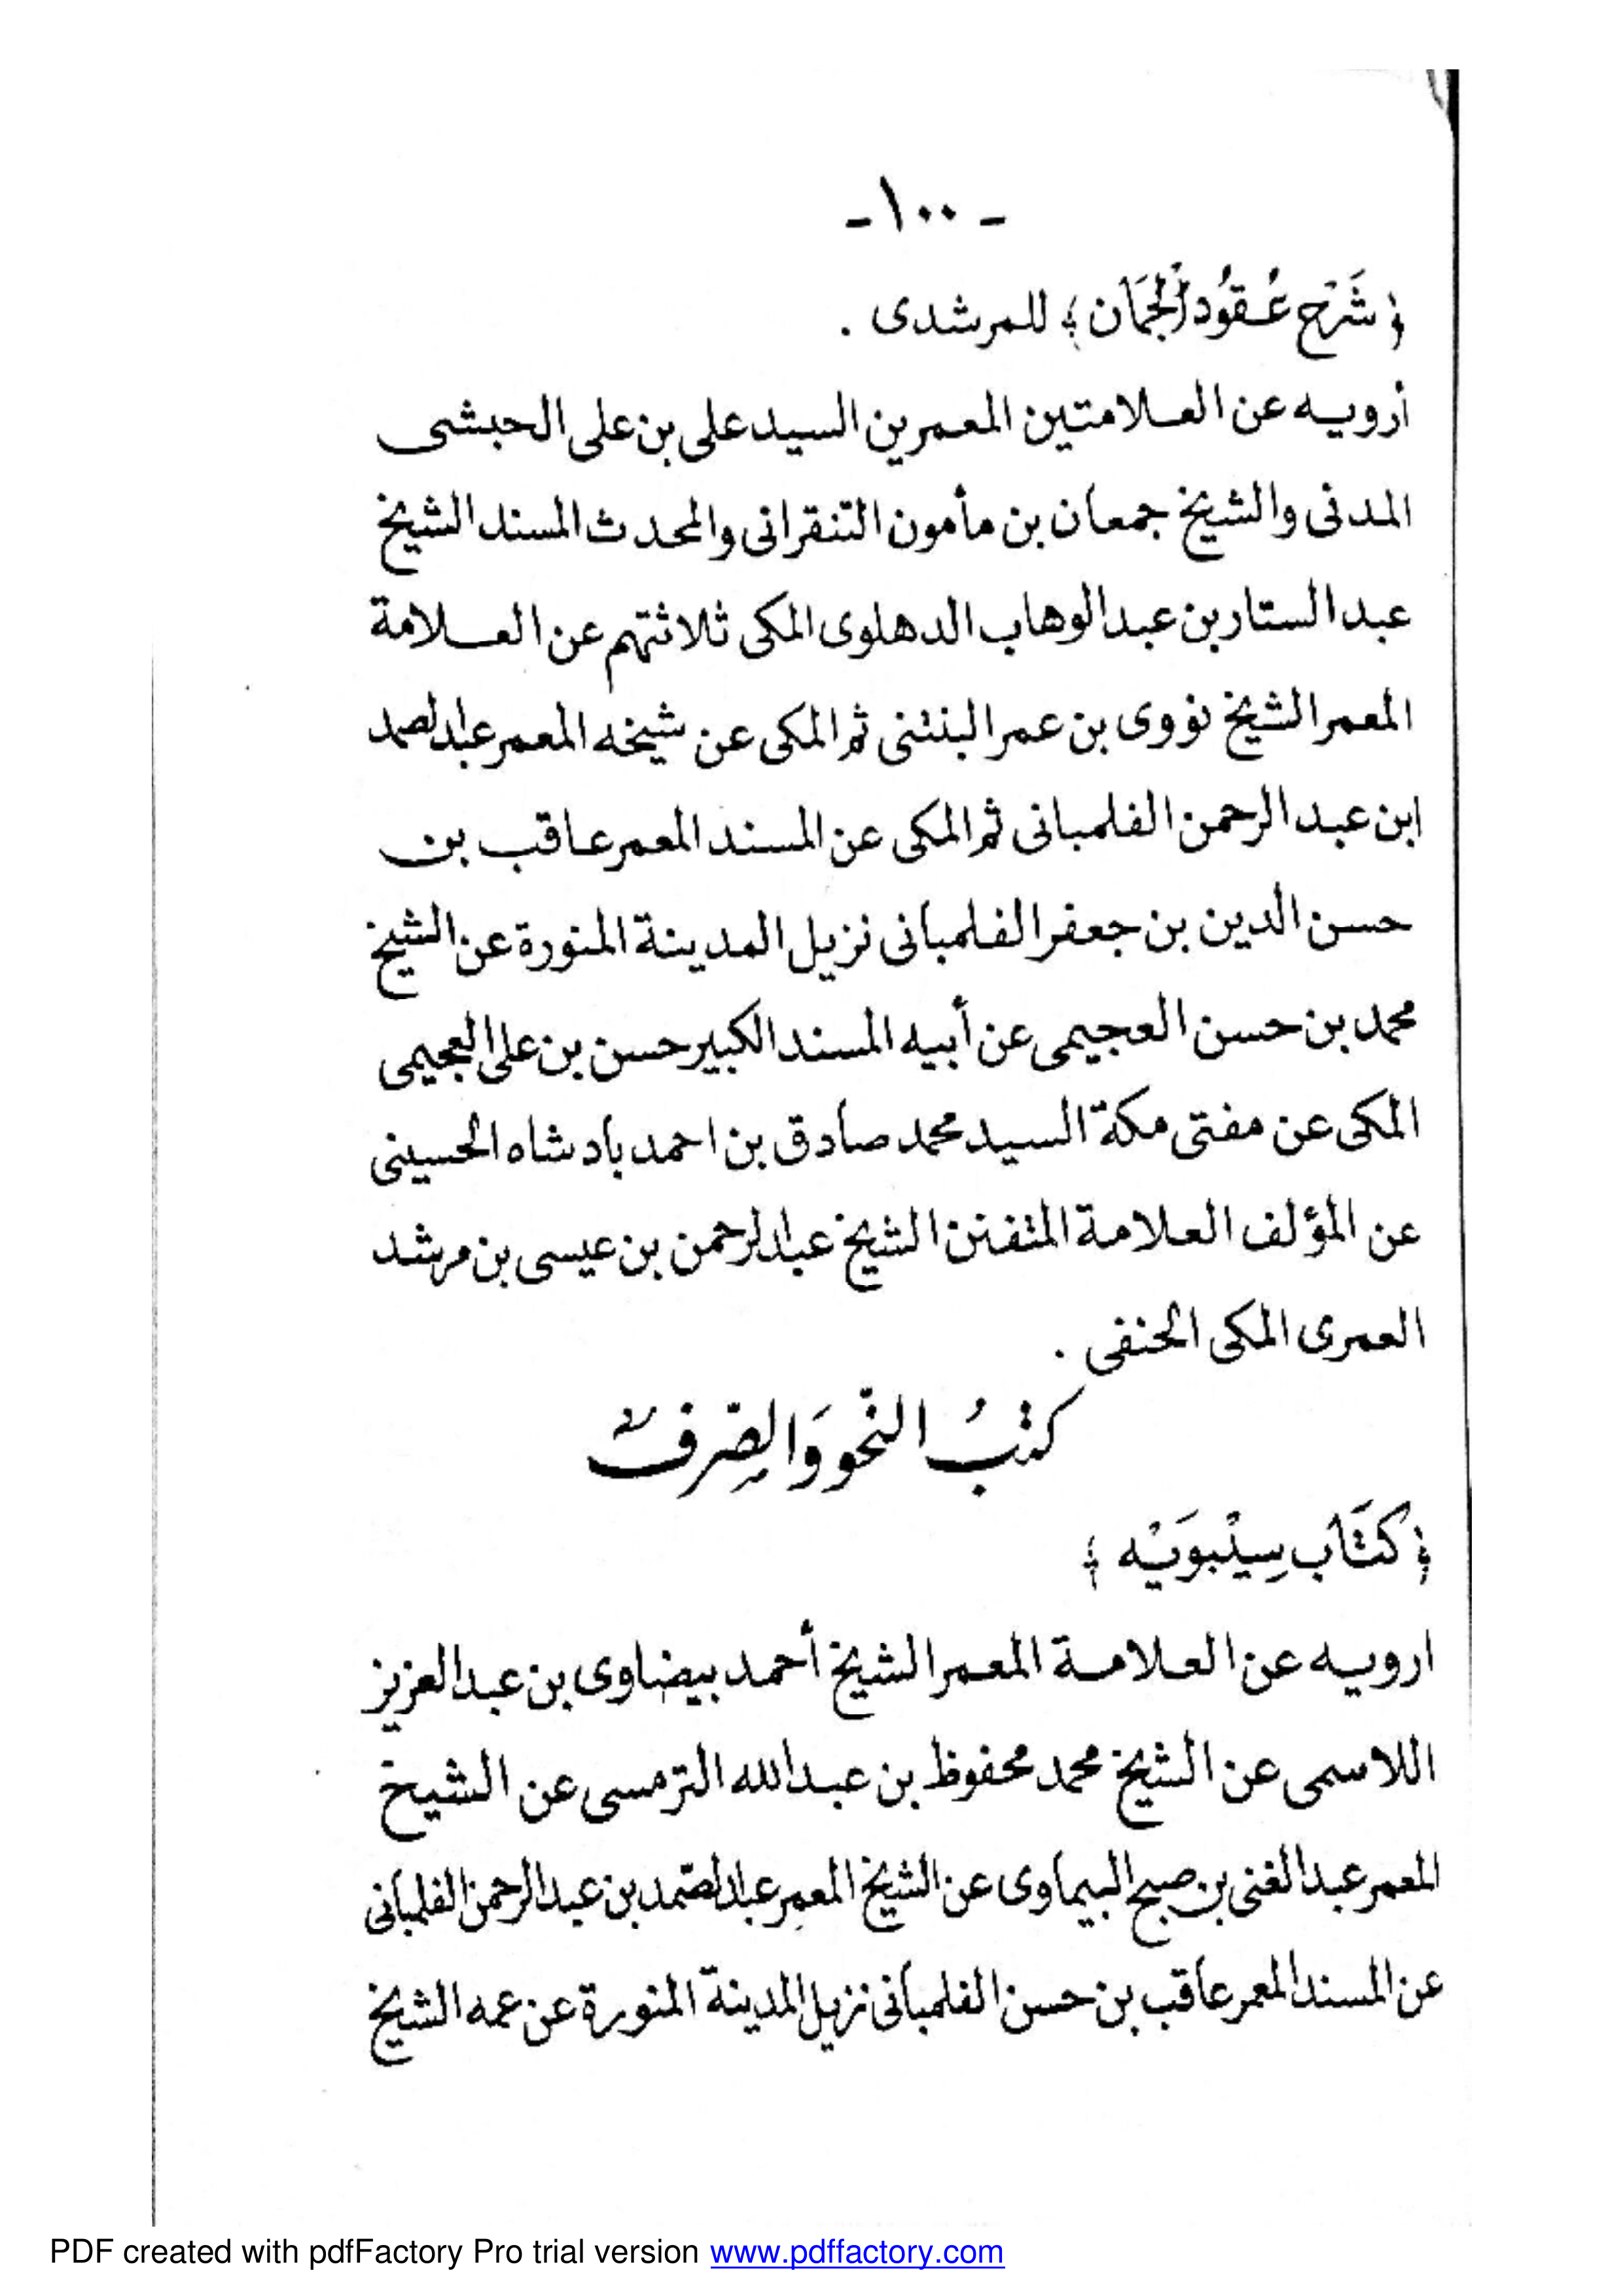 - ١٠٠ -
﴿شَرْح عُقُودُ الْجُمَان﴾ للمرشدى .
أرويه عن العلامتين المعمرين السيد على بن على الحبشى
المدنى والشيخ جمعان بن مأمون التنقرانى والمحدث المسند الشيخ
عبد الستار بن عبد الوهاب الدهلوى المكى ثلاثتهم عن العلامة
المعمر الشيخ نووى بن عمر البنتنى ثم المكى عن شيخه المعمر عبد الصمد
ابن عبد الرحمن الفلمبانى ثم المكى عن المسند المعمر عاقب بن
حسن الدين بن جعفر الفلمبانى نزيل المدينة المنورة عن الشيخ
محمد بن حسن العجيمى عن أبيه المسند الكبير حسن بن على العجيمى
المكى عن مفتى مكة السيد محمد صادق بن احمد بادشاه الحسينى
عن المؤلف العلامة المتفنن الشيخ عبد الرحمن بن عيسى بن مرشد
العمرى المكى الحنفى .
كتبُ النّحو وَالصِّرف
﴿كتَاب سِيْبوَيْه﴾
ارويه عن العلامة المعمر الشيخ أحمد بيضاوى بن عبد العزيز
اللاسمى عن الشيخ محمد محفوظ بن عبد الله الترمسى عن الشيخ
المعمر عبد الغنى بن صبح البيماوى عن الشيخ المعمر عبد الصّمد بن عبد الرحمن الفلمبانى
عن المسند المعمر عاقب بن حسن الفلمبانى نزيل المدينة المنورة عن عمه الشيخ
PDF created with pdfFactory Pro trial version www.pdffactory.com